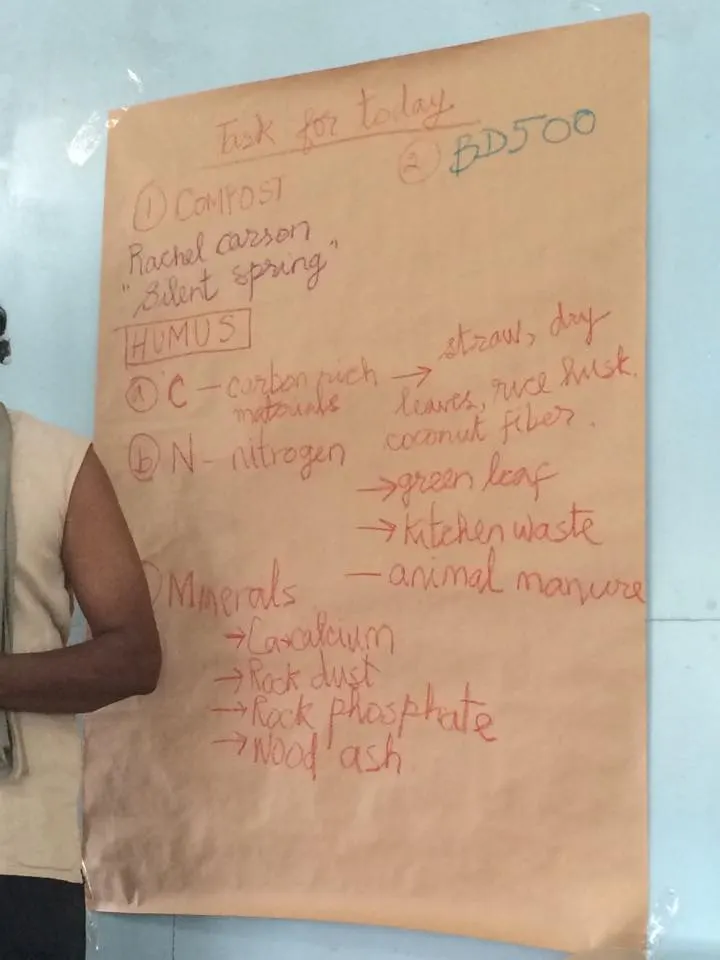 Task for today
① COMPOST
② BD500
Rachel carson
"Silent spring"
HUMUS
ⓐ C – carbon rich materials → straw, dry
leaves, rice husk.
coconut fiber.
ⓑ N – nitrogen
→ green leaf
→ kitchen waste
– animal manure
Minerals
→ Ca-calcium
→ Rock dust
→ Rock phosphate
→ Wood ash